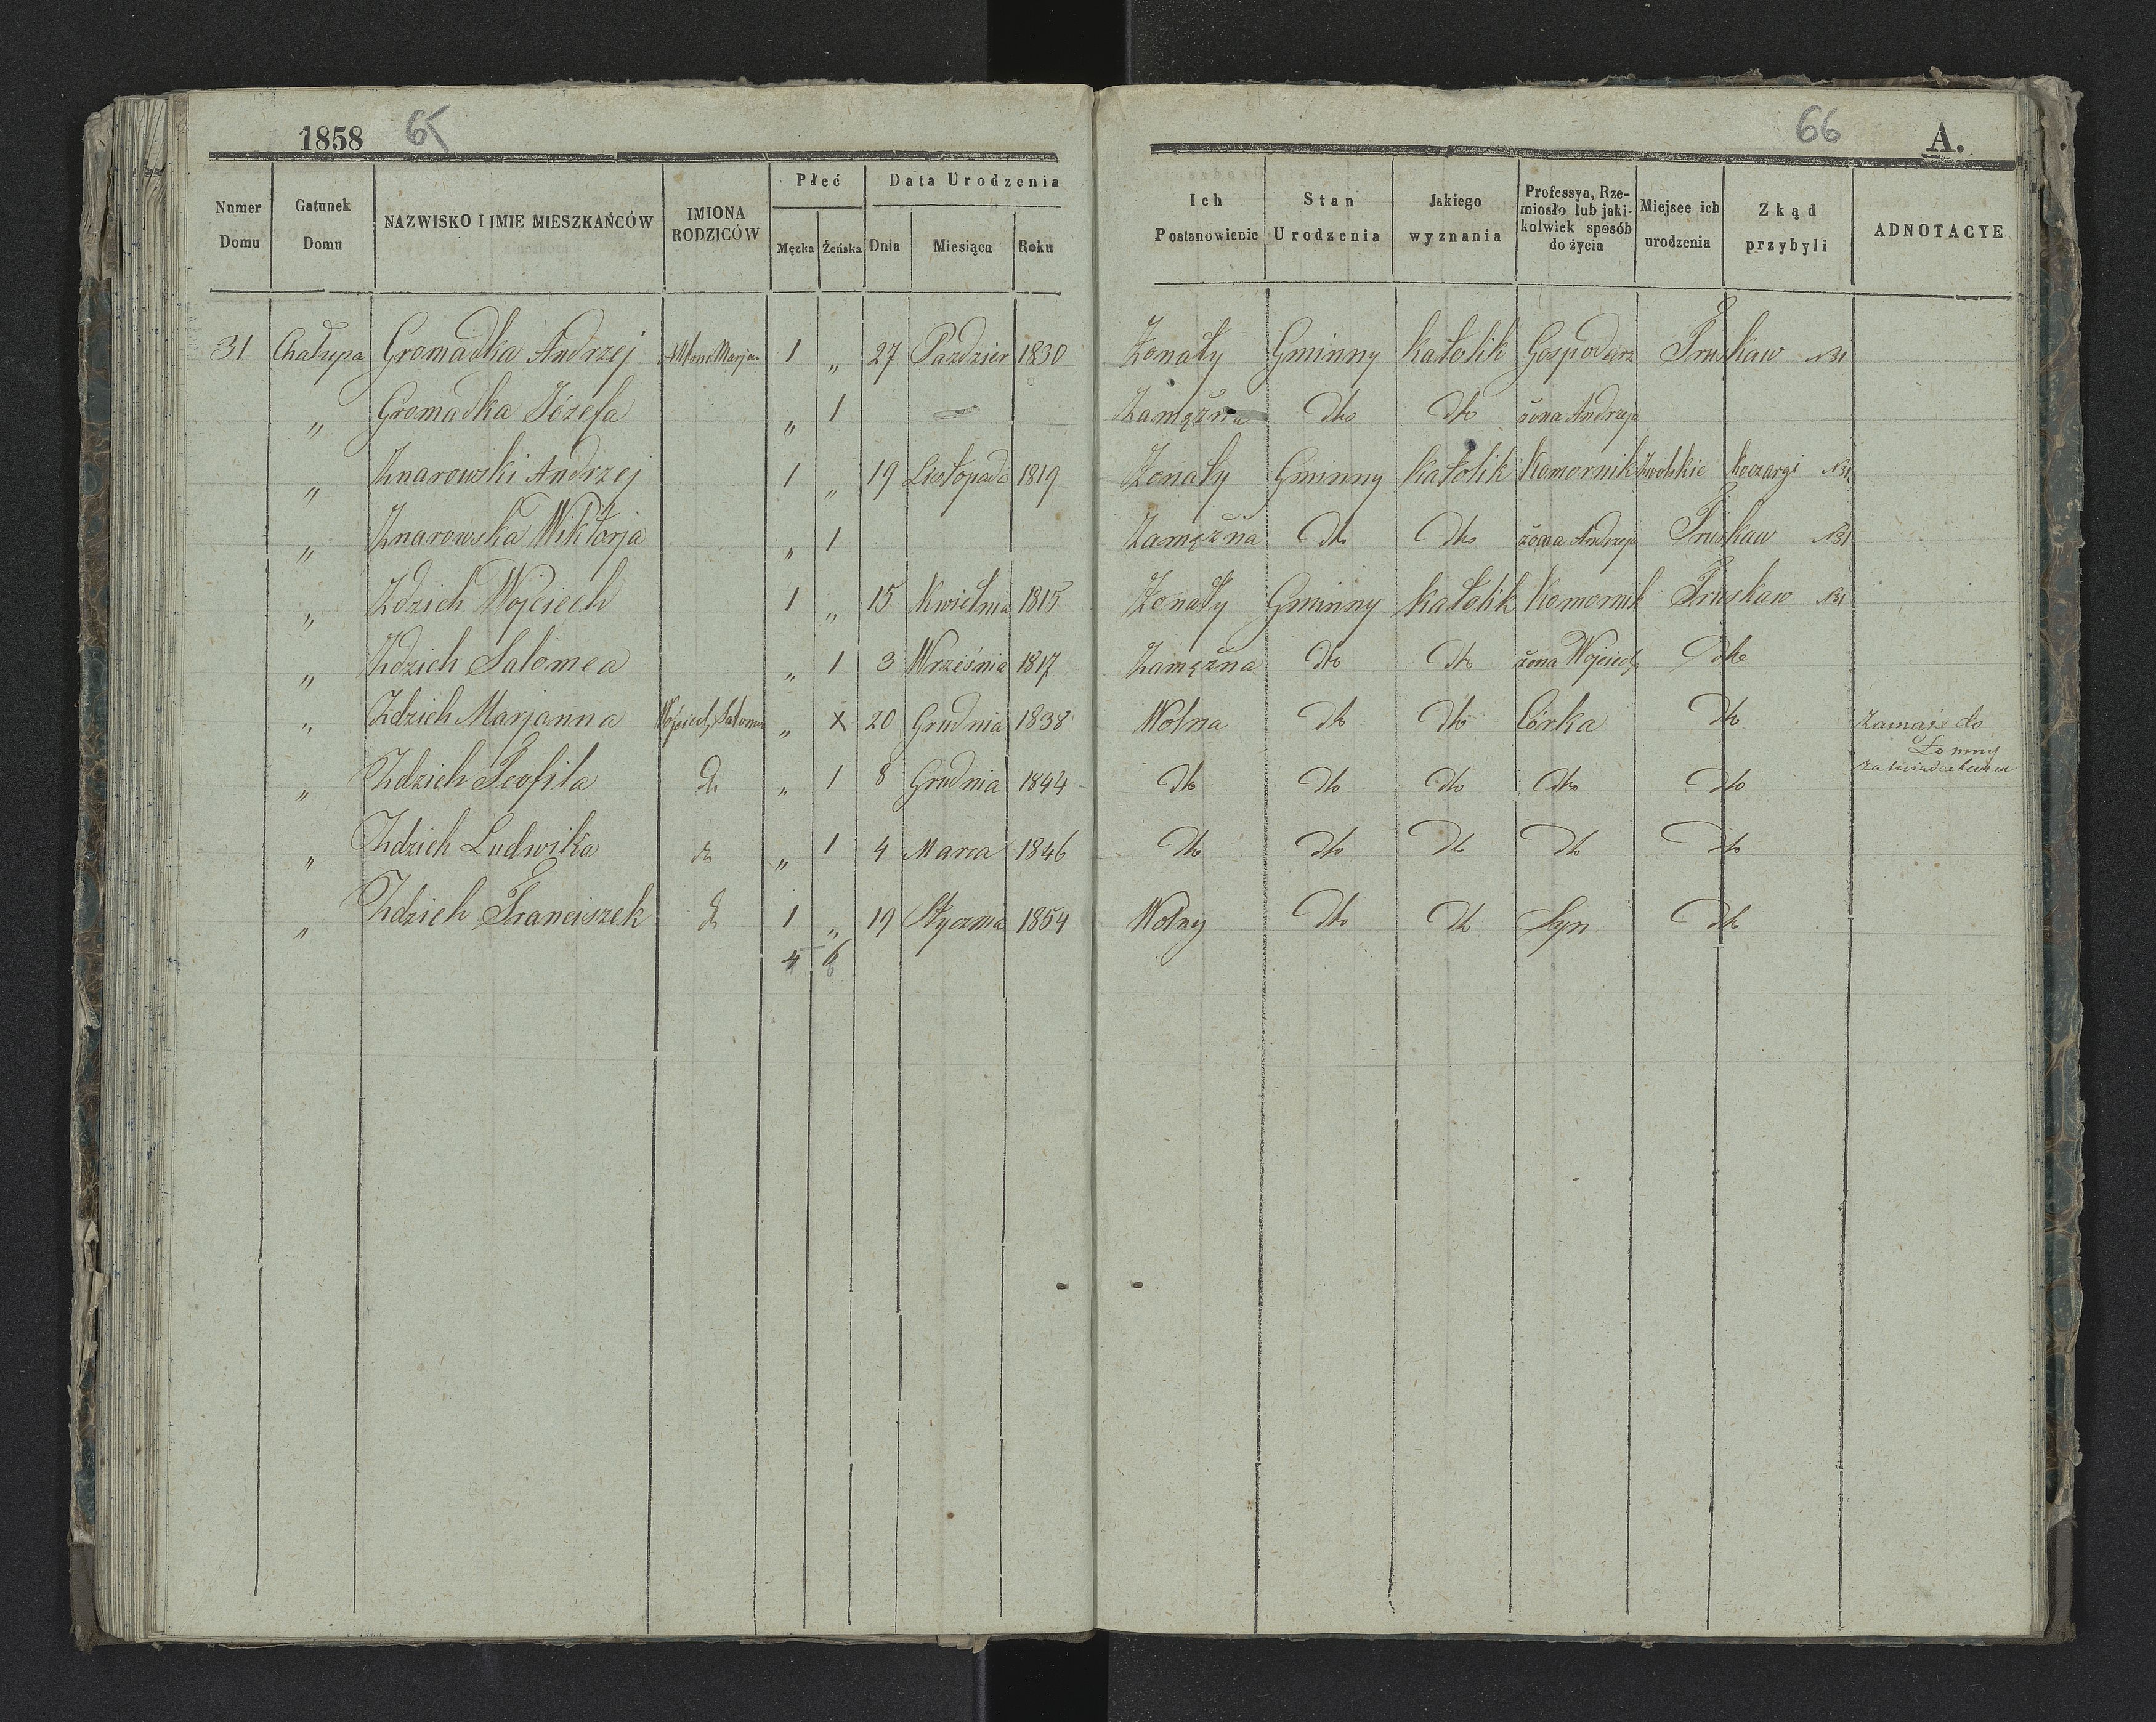 1858 65
Numer Domu Gatunek Domu NAZWISKO I IMIE MIESZKAŃCÓW IMIONA RODZICÓW Płeć Męzka Żeńska Data Urodzenia Dnia Miesiąca Roku
31 Chałupa Gromadka Andrzej Marjan 1 „ 27 Pazdzier 1830
„ Gromadka Józefa „ 1 —
„ Znarowski Andrzej 1 „ 19 Listopada 1819
„ Znarowska Wiktorja „ 1
„ Zdzich Wojciech 1 „ 15 Kwietnia 1815
„ Zdzich Salomea „ 1 3 Września 1817
„ Zdzich Marjanna Wojciech Salomea „ X 20 Grudnia 1838
„ Zdzich Teofila dto „ 1 8 Grudnia 1844
„ Zdzich Ludwika dto „ 1 4 Marca 1846
„ Zdzich Franciszek dto 1 „ 19 Stycznia 1854
4 6
66 A.
Ich Postanowienie Stan Urodzenia Jakiego wyznania Professya, Rzemiosło lub jakikolwiek sposób do życia Miejsce ich urodzenia Zkąd przybyli ADNOTACYE
Zonaty Gminny katolik Gospodarz Truskaw N31
Zamężna dto dto żona Andrzeja
Zonaty Gminny katolik Komornik Koczargi N31
Zamężna dto dto żona Andrzeja Truskaw N31
Zonaty Gminny katolik Komornik Truskaw N31
Zamężna dto dto żona Wojciech dto
Wolna dto dto Córka dto Zamąż do
Łomny
za świadectwem
dto dto dto dto dto
dto dto dto dto dto
Wolny dto dto Syn dto